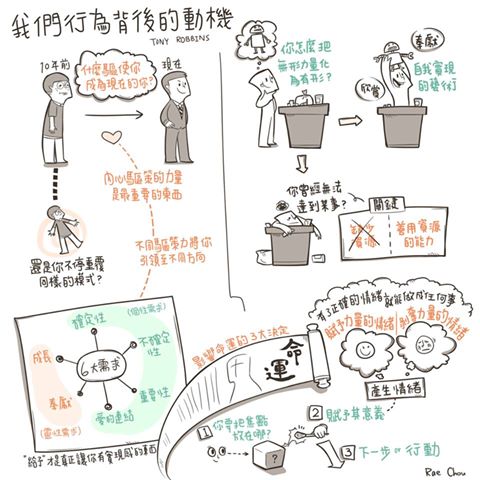 我們行為背後的動機
TONY ROBBINS
10年前
什麼驅使你
成為現在的你?
現在
內心驅策的力量
是最重要的東西
不同驅策力將你
引領至不同方向
還是你不停重覆
同樣的模式?
你怎麼把
無形力量化
為有形?
奉獻
欣賞
自我實現
的藝術
你曾經無法
達到某事?
關鍵
缺少
資源
善用資源
的能力
確定性
(個性需求)
不確定
性
成長
6大需求
重要性
奉獻
愛的連結
(靈性需求)
"給予"才是真正讓你有實現感的東西
影響命運的3大決定
命
運
有3正確的情緒就能做成任何事
賦予力量的情緒
剝奪力量的情緒
產生情緒
1 你要把焦點
放在哪?
2 賦予其意義
3 下一步or行動
Rae Chou